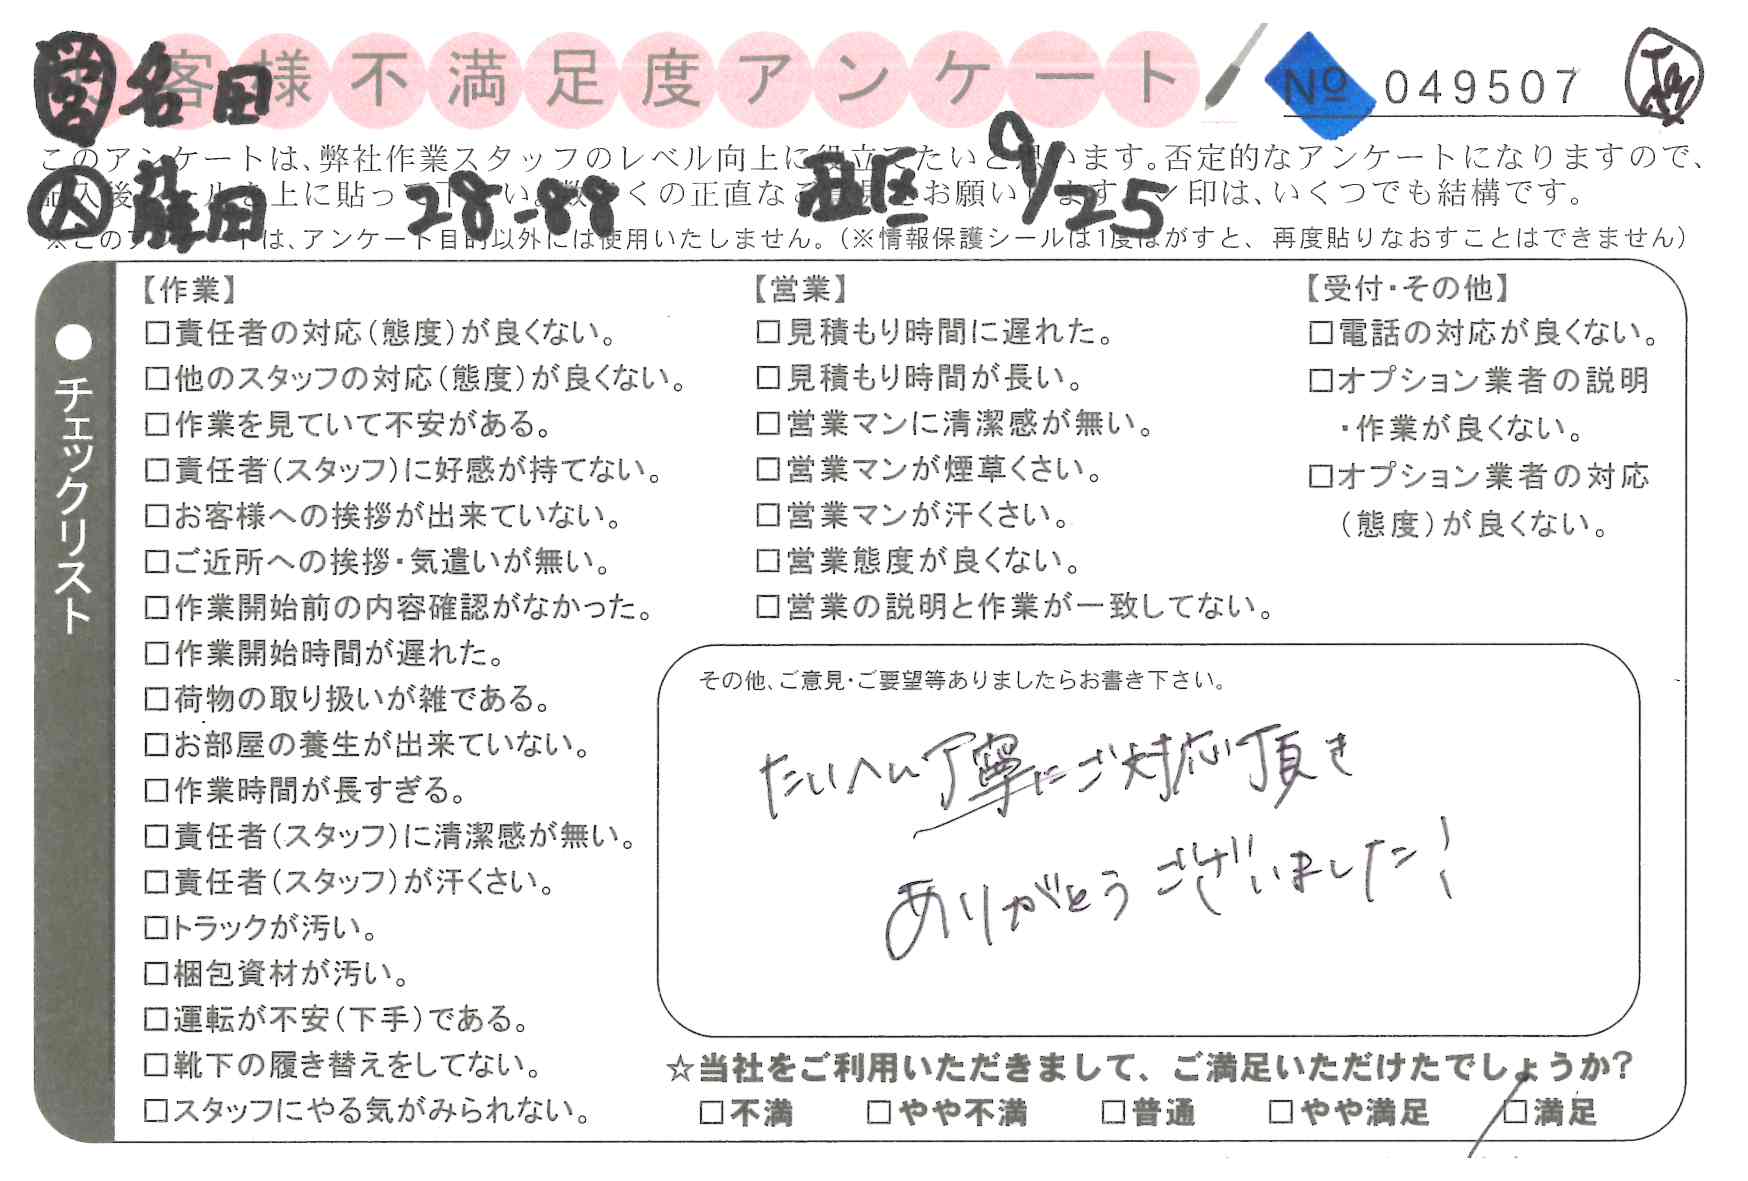 お客様不満足度アンケート
№ 049507
営 名田
このアンケートは、弊社作業スタッフのレベル向上に役立てたいと思います。否定的なアンケートになりますので、
記入後シールを上に貼って下さい。数多くの正直なご意見をお願いします。✓印は、いくつでも結構です。
人 熊田 28-88 丑区 9/25
※このアンケートは、アンケート目的以外には使用いたしません。(※情報保護シールは1度はがすと、再度貼りなおすことはできません)
●チェックリスト
【作業】
□責任者の対応(態度)が良くない。
□他のスタッフの対応(態度)が良くない。
□作業を見ていて不安がある。
□責任者(スタッフ)に好感が持てない。
□お客様への挨拶が出来ていない。
□ご近所への挨拶・気遣いが無い。
□作業開始前の内容確認がなかった。
□作業開始時間が遅れた。
□荷物の取り扱いが雑である。
□お部屋の養生が出来ていない。
□作業時間が長すぎる。
□責任者(スタッフ)に清潔感が無い。
□責任者(スタッフ)が汗くさい。
□トラックが汚い。
□梱包資材が汚い。
□運転が不安(下手)である。
□靴下の履き替えをしてない。
□スタッフにやる気がみられない。
【営業】
□見積もり時間に遅れた。
□見積もり時間が長い。
□営業マンに清潔感が無い。
□営業マンが煙草くさい。
□営業マンが汗くさい。
□営業態度が良くない。
□営業の説明と作業が一致してない。
【受付・その他】
□電話の対応が良くない。
□オプション業者の説明
・作業が良くない。
□オプション業者の対応
(態度)が良くない。
その他、ご意見・ご要望等ありましたらお書き下さい。
たいへん丁寧にご対応頂き
ありがとうございました!
☆当社をご利用いただきまして、ご満足いただけたでしょうか?
□不満 □やや不満 □普通 □やや満足 □満足